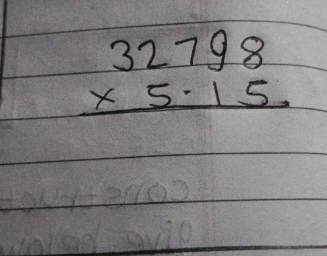 32798
× 5.15